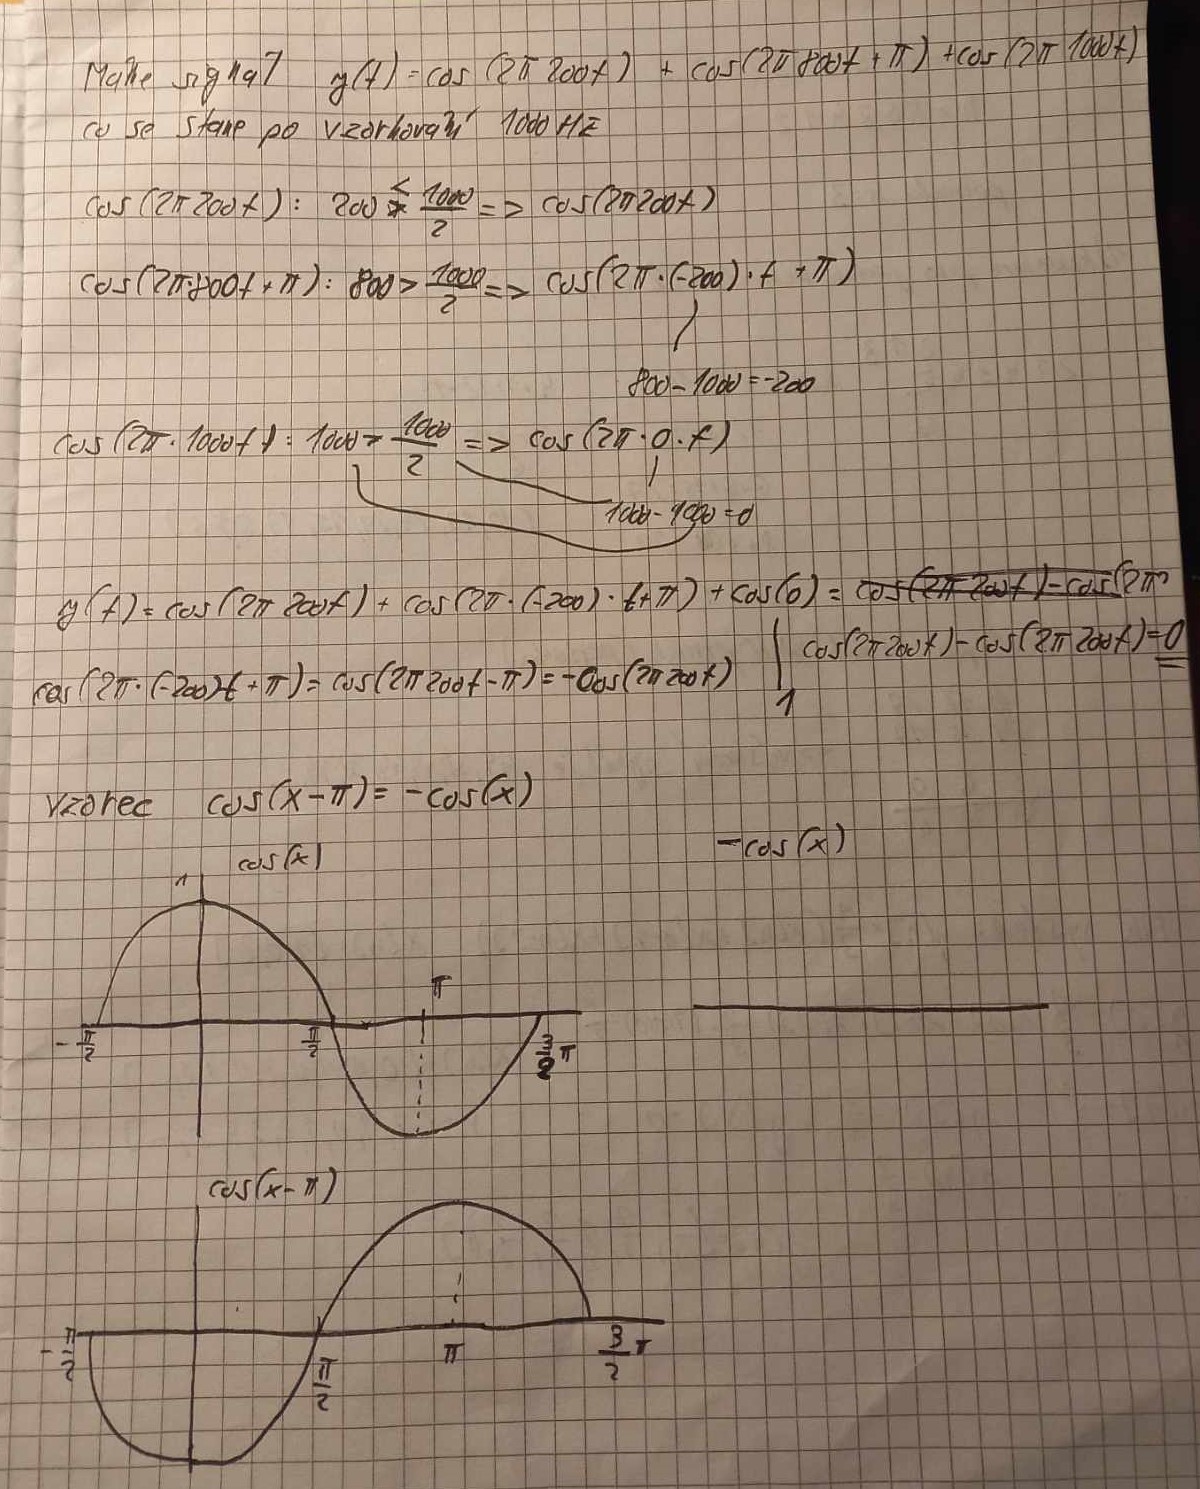 Máme signál y(t) = cos (2π 200t) + cos(2π 800t + π) + cos(2π 1000t)
co se stane po vzorkování 1000 Hz
cos(2π 200t) : 200 < 1000/2 => cos(2π 200t)
cos(2π·800t + π) : 800 > 1000/2 => cos(2π·(-200)·t + π)
800 - 1000 = -200
cos(2π·1000t) : 1000 > 1000/2 => cos(2π·0·t)
1000 - 1000 = 0
y(t) = cos(2π 200t) + cos(2π·(-200)·t+π) + cos(0) = cos(2π 200t) - cos(2π
cos(2π 200t) - cos(2π 200t) = 0
cos(2π·(-200)t + π) = cos(2π 200t - π) = -cos(2π 200t)
1
vzorec cos(x-π) = -cos(x)
-cos(x)
1 cos(x)
π
-π/2 π/2 3/2 π
cos(x-π)
-π/2 π/2 π 3/2 π